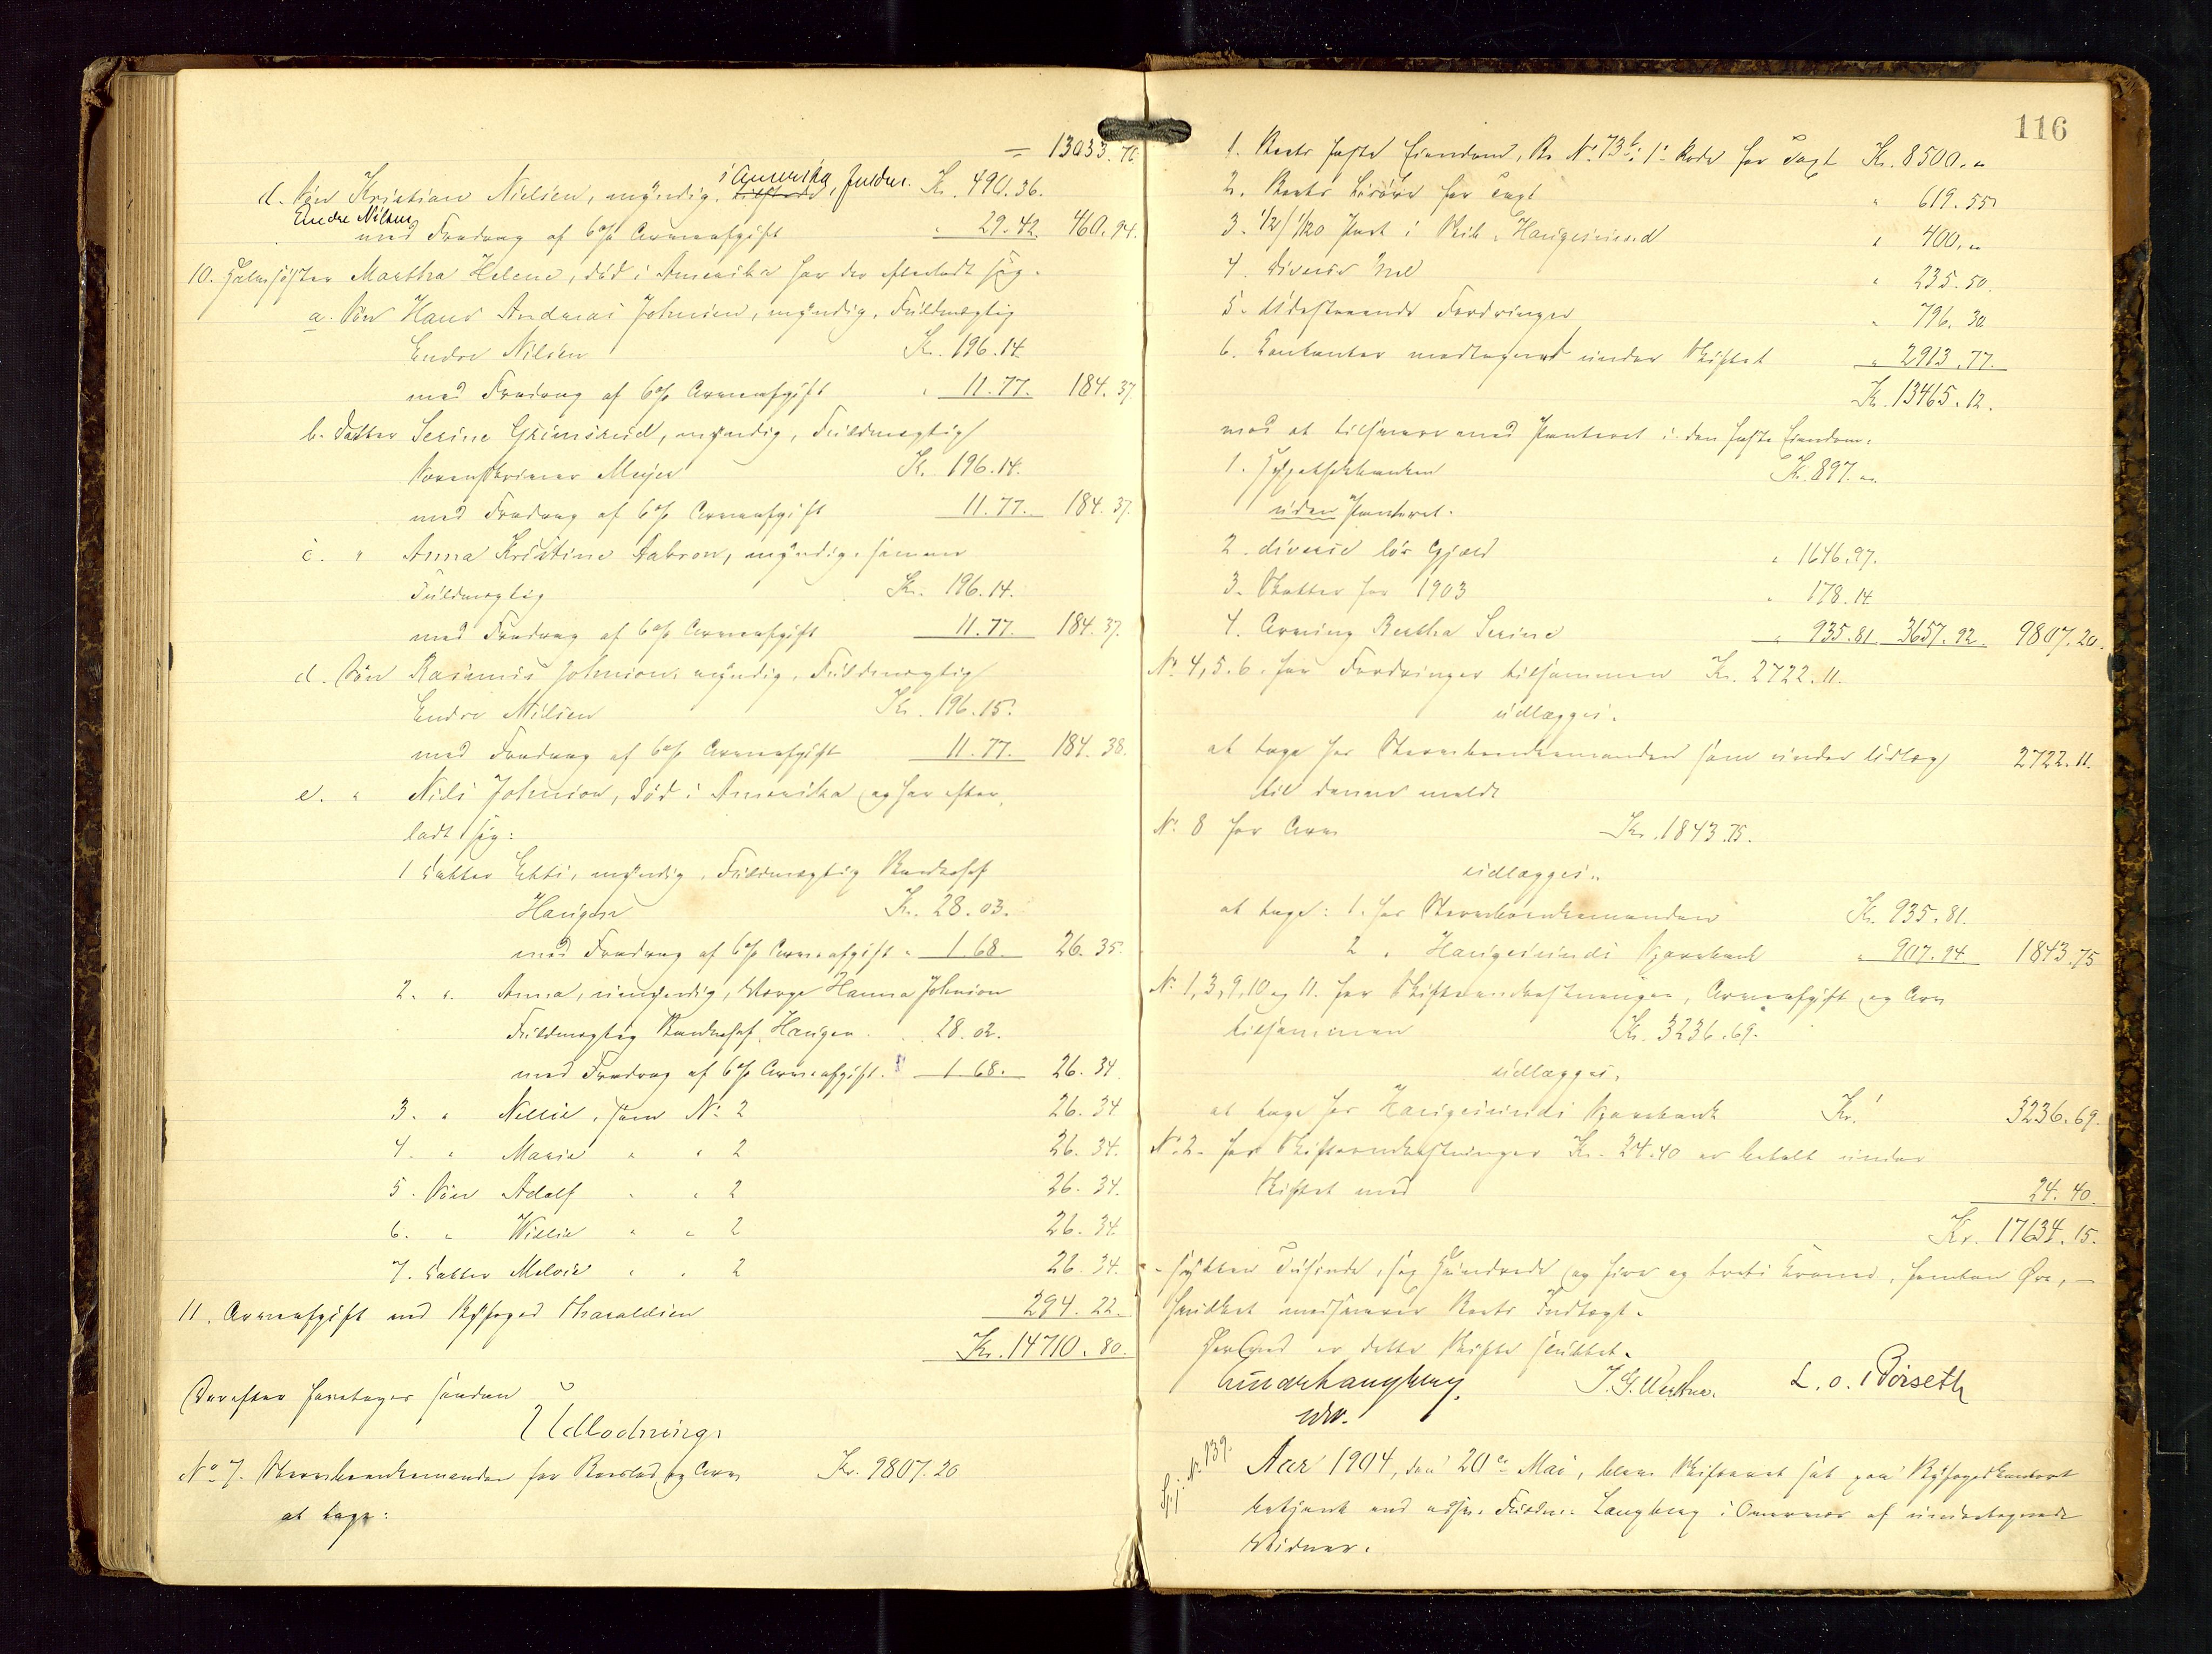 = 13033.70
i Amerika, Fuldm.
d. Søn Kristian Nielsen, myndig, tilstede Kr. 490.36.
Endre Nilsen
med Fradrag af 6% Arveafgift " 29.42. 460.94.
10. Halvsøster Martha Helene, død i Amerika har der efterladt sig.
a. Søn Hans Andreas Johnson, myndig, Fuldmægtig
Endre Nilsen Kr. 196.14.
med Fradrag af 6% Arveafgift " 11.77. 184.37
b. Datter Serine Grimsrud, myndig, Fuldmægtig
Sorenskriver Meyer Kr. 196.14.
med Fradrag af 6% Arveafgift 11.77. 184.37.
c. " Anna Kristine Aabron, myndig, samme
Fuldmægtig Kr. 196.14.
med Fradrag af 6% Arveafgift 11.77. 184.37.
d. Søn Rasmus Johnson, myndig, Fuldmægtig
Endre Nilsen Kr. 196.15.
med Fradrag af 6% Arveafgift 11.77. 184.38.
e. " Nils Johnson, død i Amerika og har efter-
ladt sig:
1 Datter Etti, myndig, Fuldmægtig Bankchef
Haugen Kr. 28.03.
med Fradrag af 6% Arveafgift " 1.68. 26.35.
2. " Anna, umyndig, Værge Hanna Johnson
Fuldmægtig Bankchef Haugen " 28.02.
med Fradrag af 6% Arveafgift. 1.68. 26.34
3. " Nellie, som No 2 26.34
4. " Marie " " 2 26.34.
5. Søn Adolf " " 2 26.34.
6. " Willie " " 2 26.34
7. Datter Melvie " " 2 26.34.
11. Arveafgift ved Byfoged Tharaldsen 294.22.
Kr. 14710.80.
Derefter foretages saadan
Udlodning.
No 7. Stervboenkemanden for Boeslod og Arv Kr. 9807.20
at tage:
116
1. Boets faste Eiendom, Br. No. 73b i 1ste Rode for Taxt Kr. 8500.„
2. Boets Løsøre for Taxt " 619.55
3. 1/2/120 Part i Skib "Haugesund " 400.„
4. diverse " 235.50.
5. Udestaaende Fordringer " 796.30
6. Kontanter modtaget under Skiftet " 2913.77.
Kr. 13465.12.
mod at tilsvare med Panteret i den faste Eiendom:
1. Hypothekbanken Kr. 897.„
uden Panteret.
2. diverse løs Gjæld " 1646.97.
3. Skatter for 1903 " 178.14
4. Arving Bertha Serine " 935.81. 3657.92. 9807.20.
No 4, 5. 6. for Fordringer tilsammen Kr. 2722.11.
udlægges.
at tage hos Stervboenkemanden som under Udlæg 2722.11.
til denne meldt
No 8 for Arv Kr. 1843.75.
udlægges.
at tage: 1. hos Stervboenkemanden Kr. 935.81.
2 " Haugesunds Sparebank " 907.94 1843.75
No 1, 3, 9, 10 og 11. for Skifteomkostninger, Arveafgift og Arv
tilsammen Kr. 3236.69.
udlægges.
at tage hos Haugesunds Sparebank Kr. 3236.69.
No 2. for Skifteomkostninger Kr. 24.40 er betalt under
Skiftet med 24.40.
Kr. 17634.15.
- sytten Tusinde, sex Hundrede og fire og treti Kroner, femten Øre, -
hvilket modsvarer Boets Indtægt.
Hermed er dette Skifte sluttet.
Einar Langberg.
const. L. O. Børseth
No. 139.
Aar 1904, den 20de Mai, blev Skifteret sat paa Byfogedkontoret
betjent ved edsv. Fuldm. Langberg i Overvær af undertegnede
Vidner.